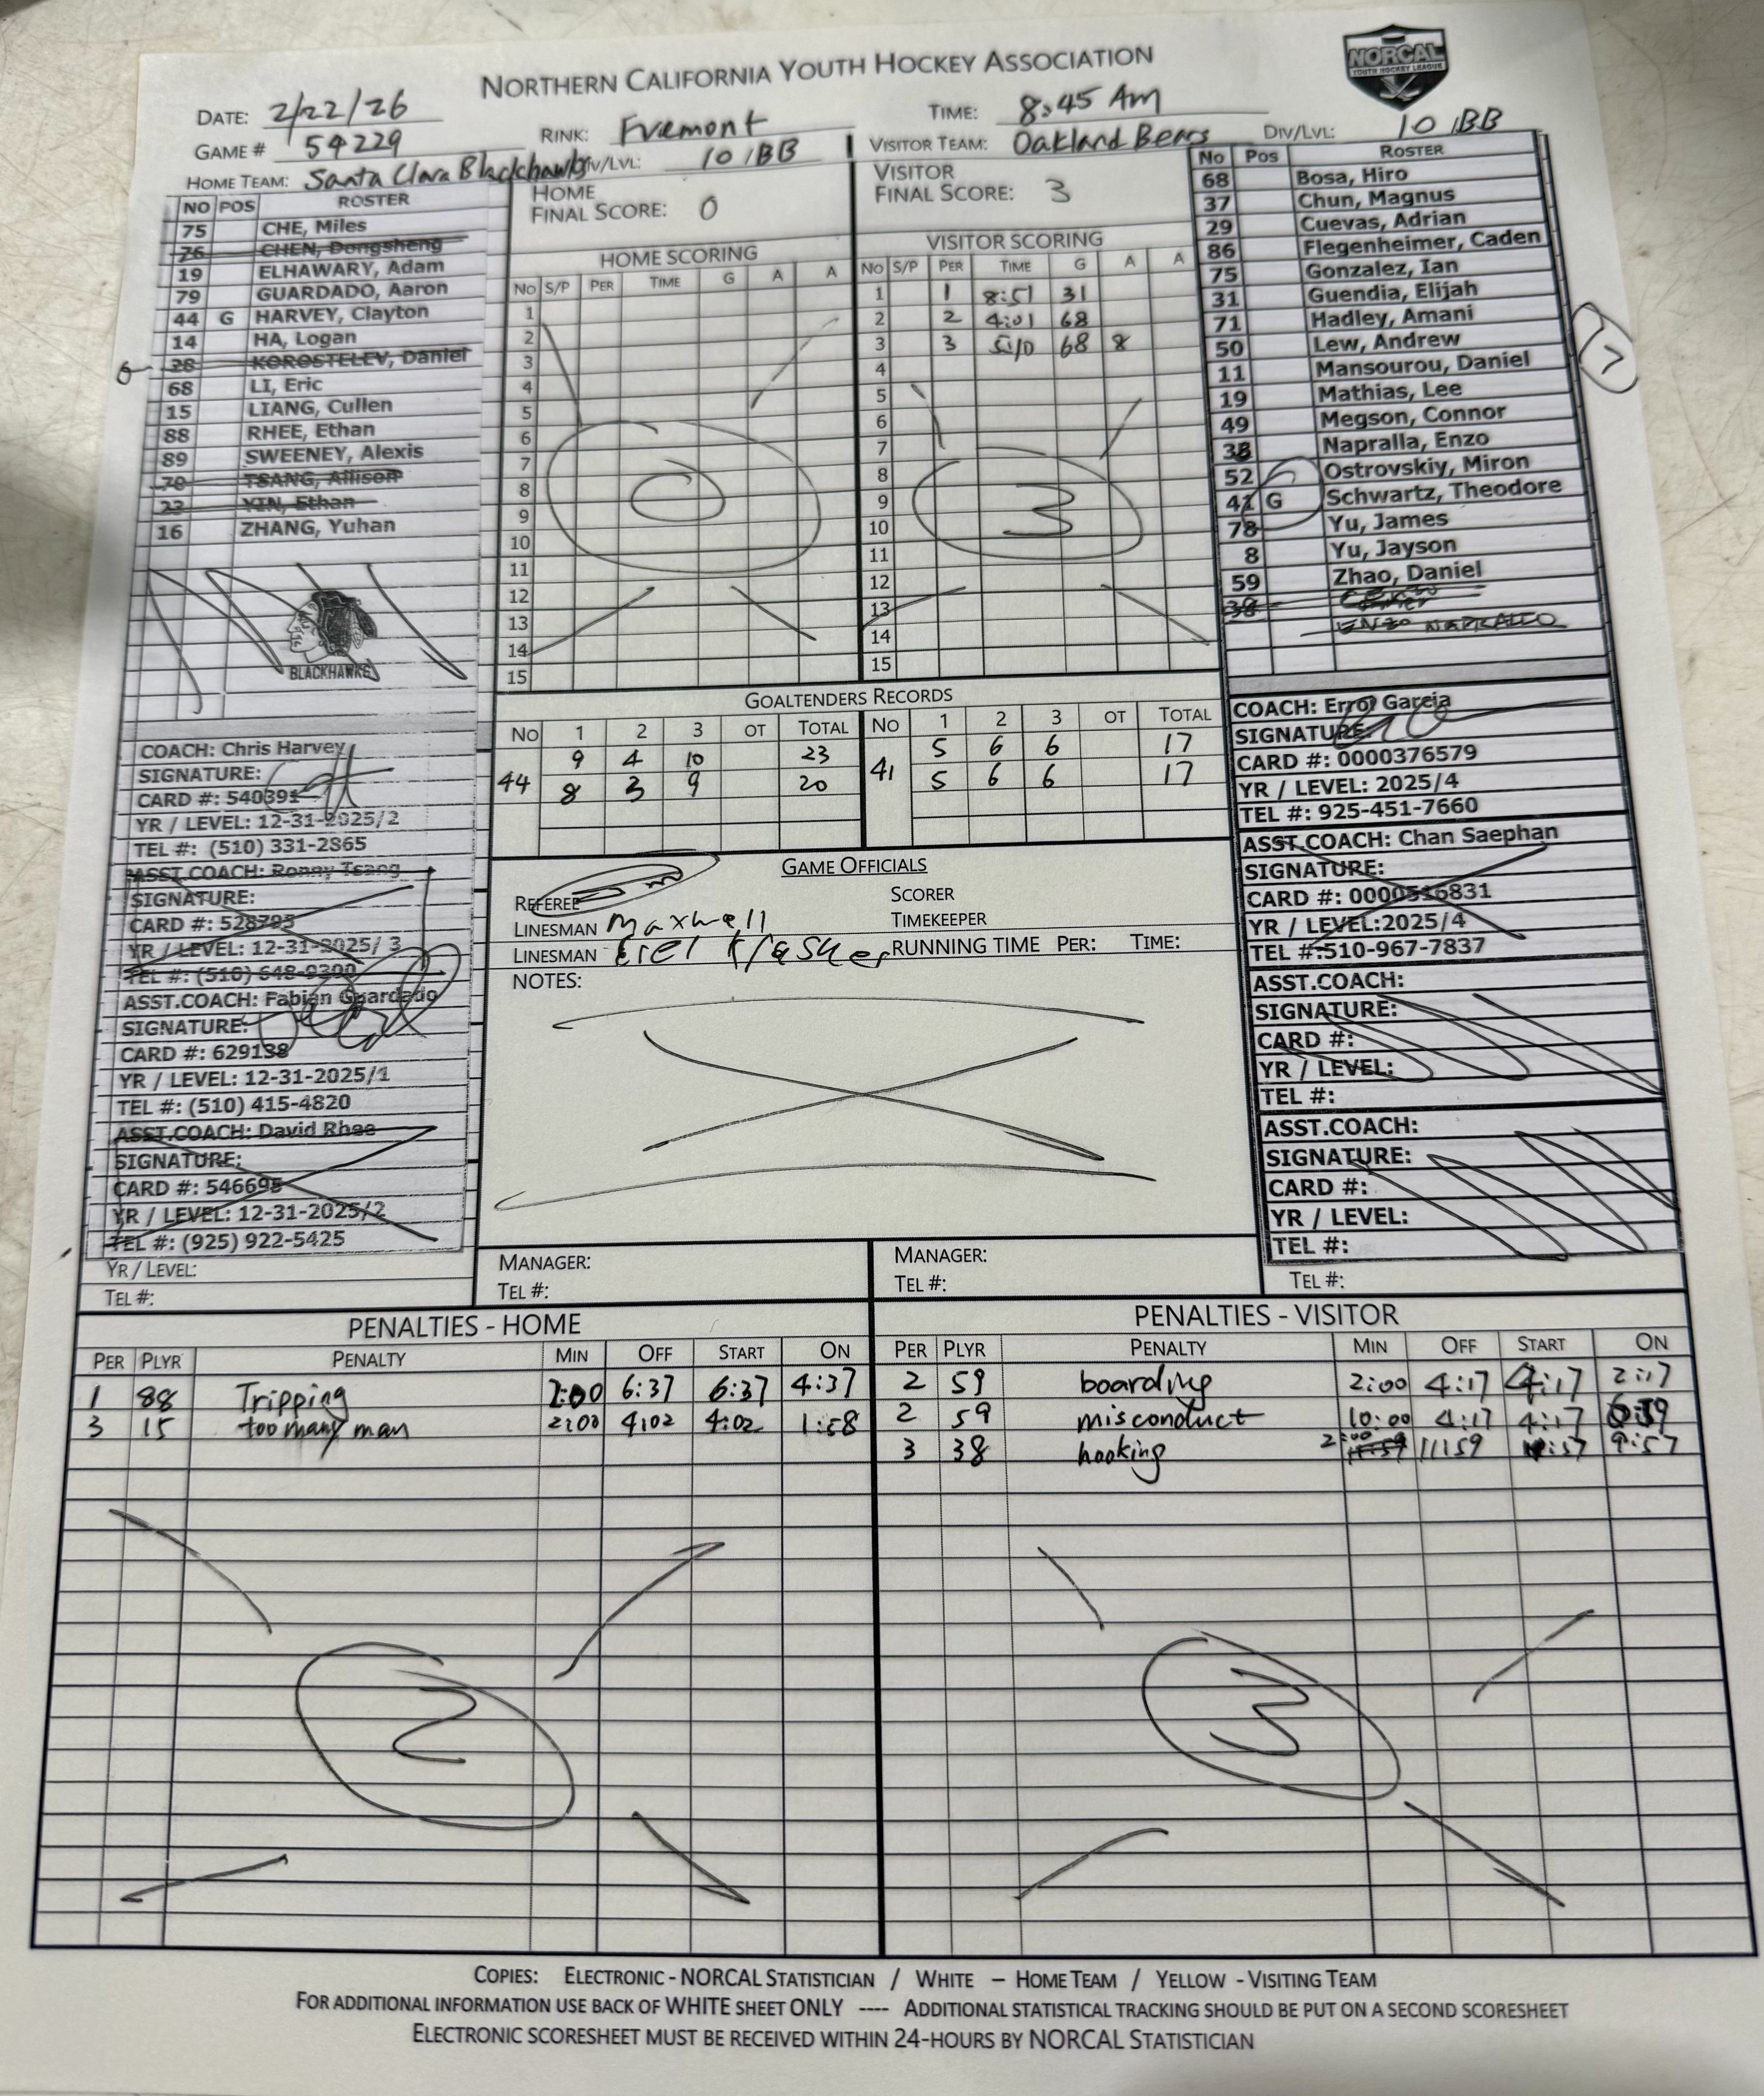 NORTHERN CALIFORNIA YOUTH HOCKEY ASSOCIATION
NORCAL
YOUTH HOCKEY LEAGUE
DATE: 2/22/26
RINK: Fremont
TIME: 8:45 AM
GAME # 54229
HOME TEAM: Santa Clara Blackhawks DIV/LVL: 10 / BB
VISITOR TEAM: Oakland Bears DIV/LVL: 10 BB
NO POS ROSTER
75 CHE, Miles
76 CHEN, Dongsheng
19 ELHAWARY, Adam
79 GUARDADO, Aaron
44 G HARVEY, Clayton
14 HA, Logan
28 KOROSTELEV, Daniel
68 LI, Eric
15 LIANG, Cullen
88 RHEE, Ethan
89 SWEENEY, Alexis
70 TSANG, Allison
23 YIN, Ethan
16 ZHANG, Yuhan
BLACKHAWKS
HOME
FINAL SCORE: 0
HOME SCORING
No S/P PER TIME G A A
1
2
3
4
5
6
7
8
9
10
11
12
13
14
15
0
VISITOR
FINAL SCORE: 3
VISITOR SCORING
No S/P PER TIME G A A
1 1 8:51 31
2 2 4:01 68
3 3 5:10 68 8
4
5
6
7
8
9
10
11
12
13
14
15
3
No Pos ROSTER
68 Bosa, Hiro
37 Chun, Magnus
29 Cuevas, Adrian
86 Flegenheimer, Caden
75 Gonzalez, Ian
31 Guendia, Elijah
71 Hadley, Amani
50 Lew, Andrew
11 Mansourou, Daniel
19 Mathias, Lee
49 Megson, Connor
38 Napralla, Enzo
52 Ostrovskiy, Miron
41 G Schwartz, Theodore
78 Yu, James
8 Yu, Jayson
59 Zhao, Daniel
38
ENZO NAPRALLO
GOALTENDERS RECORDS
No 1 2 3 OT TOTAL No 1 2 3 OT TOTAL
44 9 4 10 23 41 5 6 6 17
8 3 9 20 5 6 6 17
COACH: Chris Harvey
SIGNATURE:
CARD #: 540391
YR / LEVEL: 12-31-2025/2
TEL #: (510) 331-2865
ASST.COACH: Ronny Tsang
SIGNATURE:
CARD #: 528795
YR / LEVEL: 12-31-2025/ 3
TEL #: (510) 648-9300
ASST.COACH: Fabian Guardado
SIGNATURE:
CARD #: 629138
YR / LEVEL: 12-31-2025/1
TEL #: (510) 415-4820
ASST.COACH: David Rhee
SIGNATURE:
CARD #: 546695
YR / LEVEL: 12-31-2025/2
TEL #: (925) 922-5425
YR / LEVEL:
TEL #:
GAME OFFICIALS
REFEREE
SCORER
LINESMAN Maxwell
TIMEKEEPER
LINESMAN
RUNNING TIME PER: TIME:
NOTES:
MANAGER:
TEL #:
MANAGER:
TEL #:
COACH: Errol Garcia
SIGNATURE:
CARD #: 0000376579
YR / LEVEL: 2025/4
TEL #: 925-451-7660
ASST.COACH: Chan Saephan
SIGNATURE:
CARD #: 0000516831
YR / LEVEL:2025/4
TEL #:510-967-7837
ASST.COACH:
SIGNATURE:
CARD #:
YR / LEVEL:
TEL #:
ASST.COACH:
SIGNATURE:
CARD #:
YR / LEVEL:
TEL #:
TEL #:
PENALTIES - HOME
PER PLYR PENALTY MIN OFF START ON
1 88 Tripping 2:00 6:37 6:37 4:37
3 15 too many man 2:00 4:02 4:02 1:58
2
PENALTIES - VISITOR
PER PLYR PENALTY MIN OFF START ON
2 59 boarding 2:00 4:17 4:17 2:17
2 59 misconduct 10:00 4:17 4:17
3 38 hooking 2:00 11:59 9:57
3
COPIES: ELECTRONIC - NORCAL STATISTICIAN / WHITE – HOME TEAM / YELLOW - VISITING TEAM
FOR ADDITIONAL INFORMATION USE BACK OF WHITE SHEET ONLY ---- ADDITIONAL STATISTICAL TRACKING SHOULD BE PUT ON A SECOND SCORESHEET
ELECTRONIC SCORESHEET MUST BE RECEIVED WITHIN 24-HOURS BY NORCAL STATISTICIAN